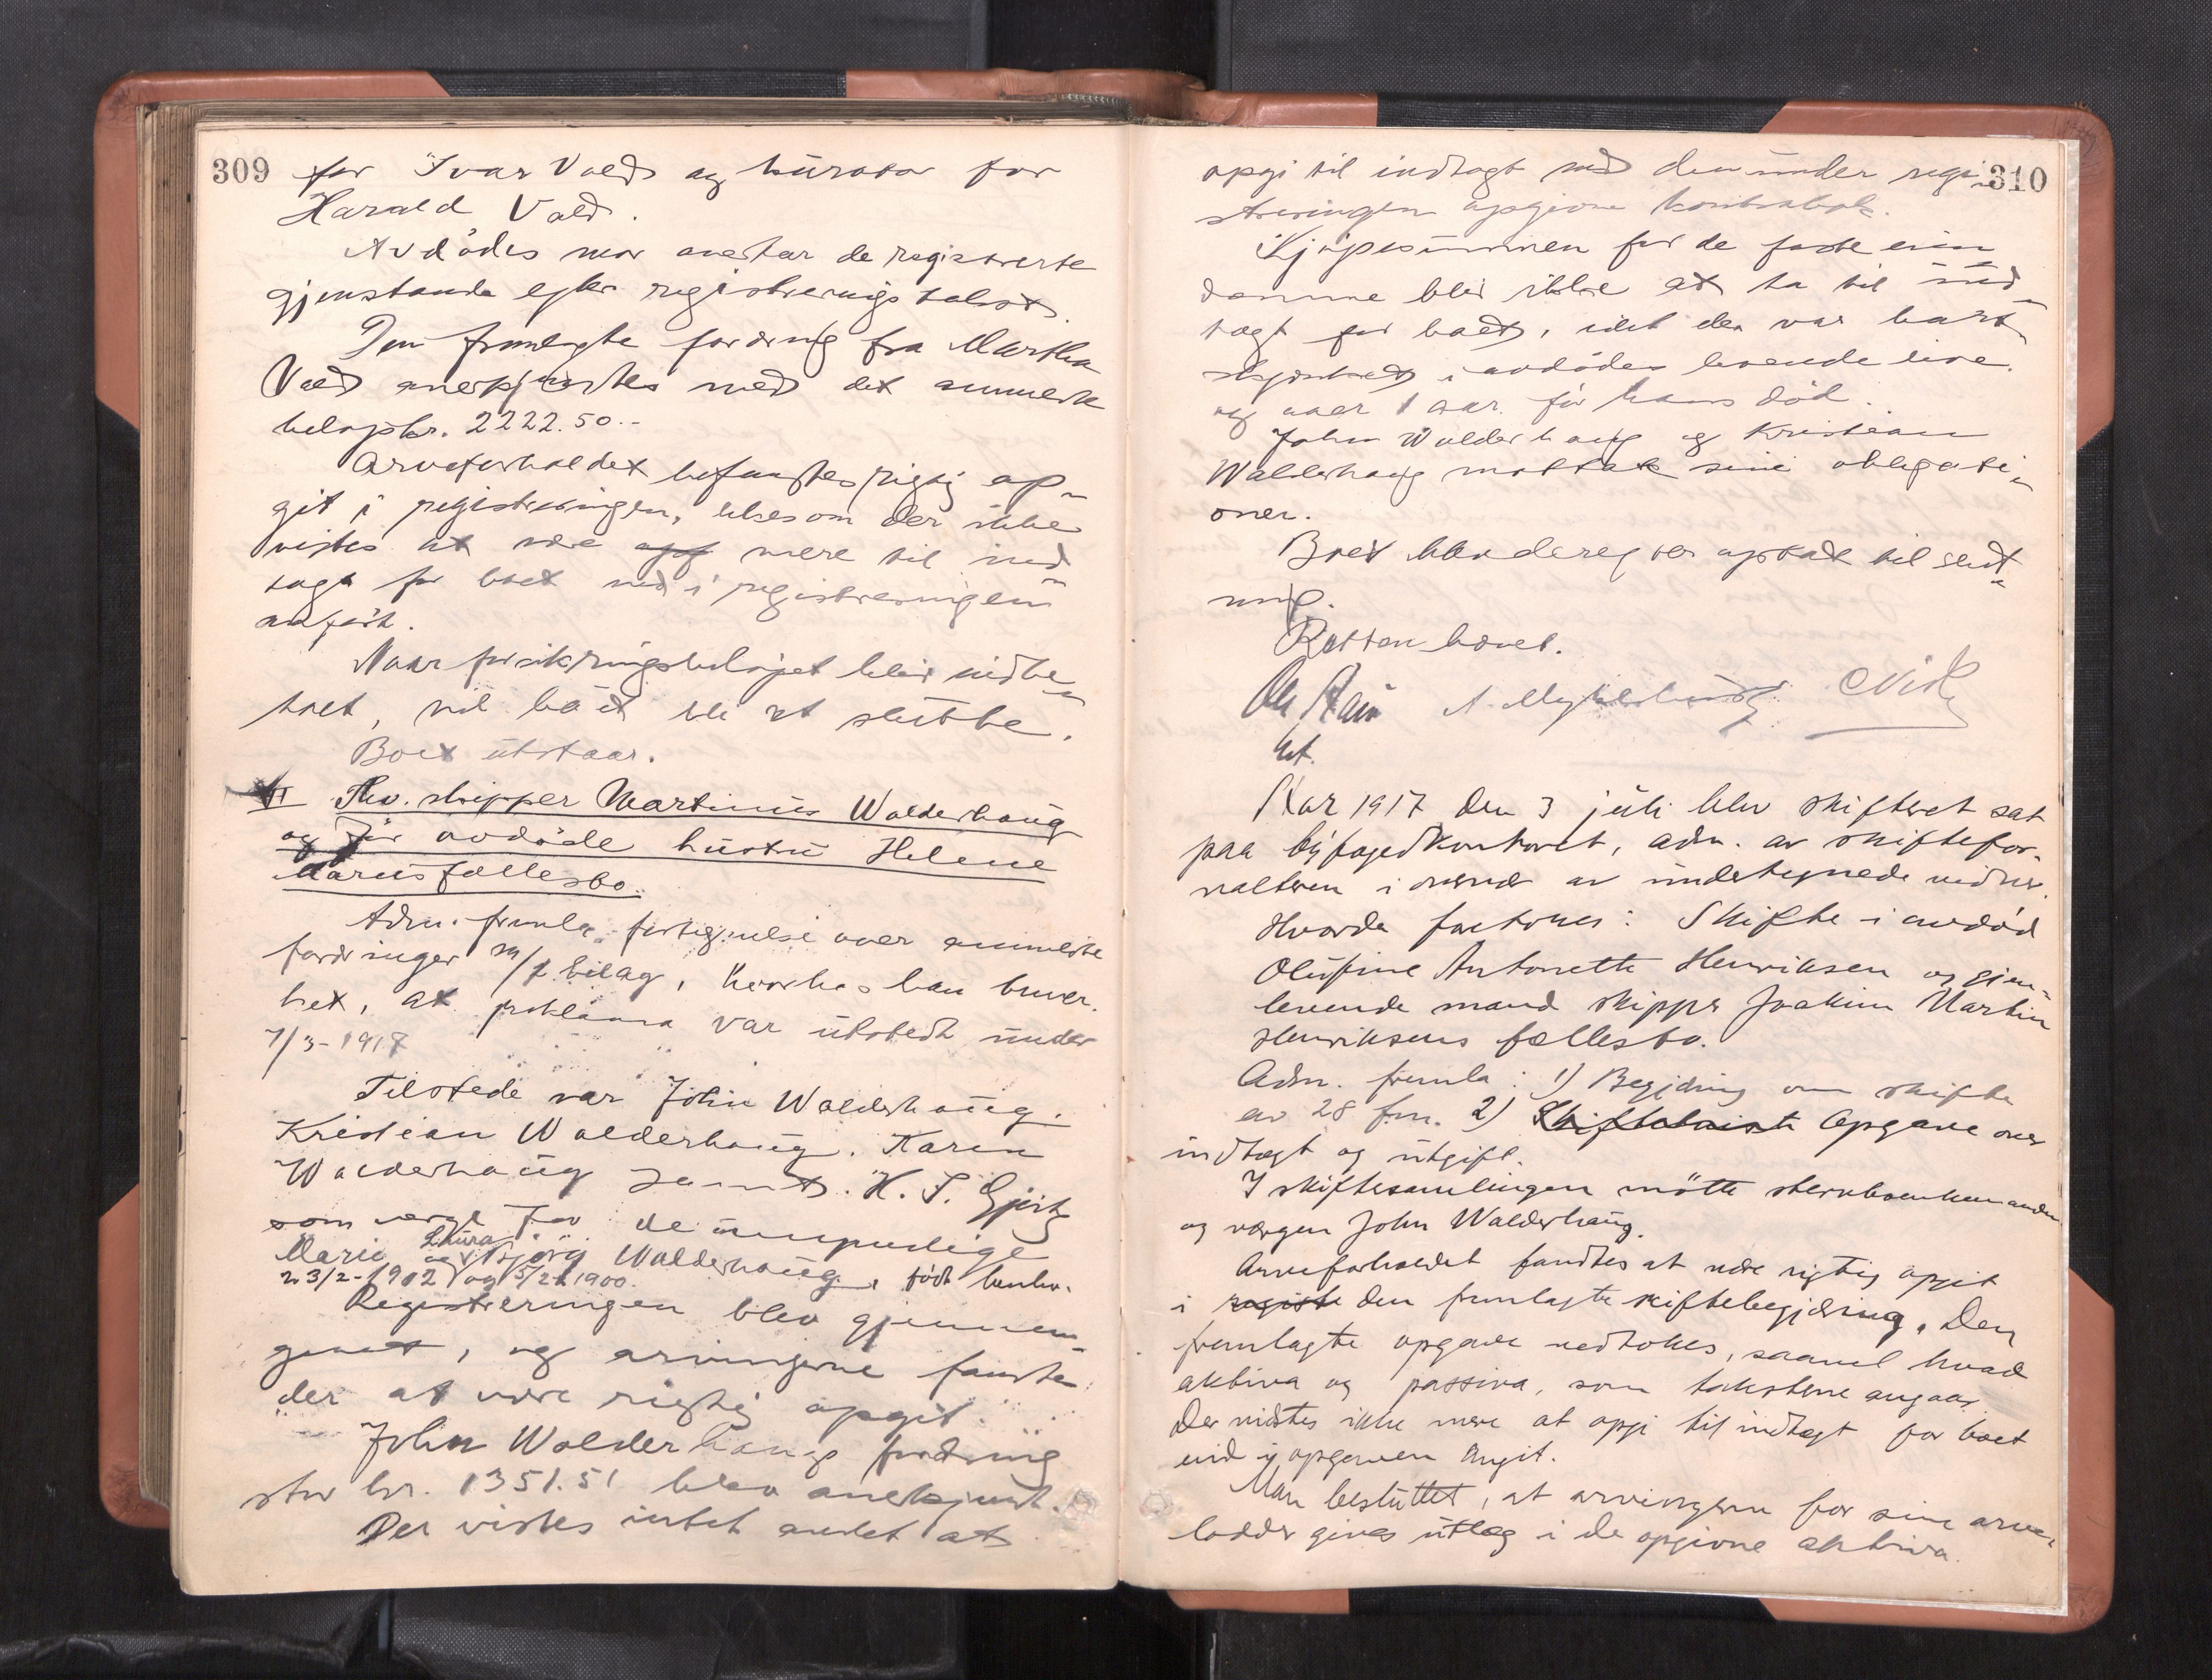 309
for Ivar Vold og kurator for
Harald Vold.
Avdödes mor overtar de registrerte
gjenstande efter registreringstakst.
Den fremlagte fordring fra Martha
Vold anerkjendtes med det anmeldte
beløp kr. 2222.50.-
Arveforholdet befandtes rigtig op-
git i registreringen, likesom der ikke
vistes at være mere til ind-
tægt for boet end i registreringen
anført.
Naar forsikringsbeløpet blir indbe-
talt, vil boet bli at slutte.
Boet utstaar.
VI Fhv. skipper Martinus Walderhaug
og før avdöde hustru Helene
Marius fællesbo.
Adm. fremla fortegnelse over anmeldte
fordringer m/7 bilag, hvorhos han bemer-
ket, at proklama var utstedt under
7/3-1917
Tilstede var John Walderhaug.
Kristian Walderhaug. Karen
Walderhaug samt H. S. Gjortz
som verge for de umyndige
Marie Laura og Bjørg Walderhaug, født henhv.
23/2-1902 og 5/2 1900.
Registreringen blev gjennem-
gaaet, og arvingerne fandtes
der at være rigtig opgit.
John Walderhaugs fordring
stor kr. 1351.51 blev anerkjendt.
Der vistes intet andet at
310
opgi til indtægt end den under regi-
streringen opgivne kontrabok.
Kjøpesummen for de faste eien-
domme blir ikke at ta til ind-
tægt for boet, idet den var bort-
skjænket i avdödes levende live
og over 1 aar før hans död.
John Walderhaug og Kristian
Walderhaug mottok sine obligati-
oner.
Boet blev derefter optat til slut-
ning.
Retten hævet.
Aar 1917 den 3 juli blev skifteret sat
paa byfogedkontoret, adm. av skiftefor-
valteren i overvær av undertegnede vidner.
Hvorda foretokes: Skifte i avdöd
Olufine Antonette Henriksen og gjen-
levende mand skipper Joakim Martin
Henriksens fællesbo.
Adm. fremla: 1) Begjæring om skifte
av 28 f.m. 2) Opgave over
indtægt og utgift.
I skiftesamlingen mötte sterboenkemanden
og vergen John Walderhaug.
Arveforholdet fandtes at være rigtig opgit
i registe den fremlagte skiftebegjæring. Den
fremlagte opgave vedtokes, saavel hvad
aktiva og passiva, som taksterne angaar.
Der vistes ikke mere at opgi til indtægt for boet
end i opgaven angit.
Man besluttet, at arvingerne for sine arve-
lodder gives utlæg i de opgivne aktiva.